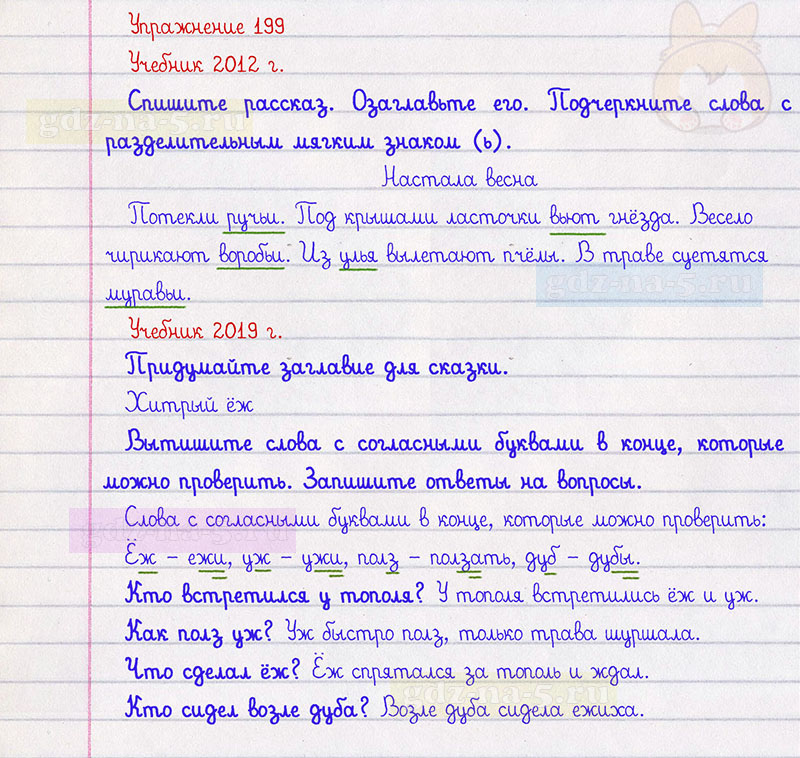 Упражнение 199
Учебник 2012 г.
Спишите рассказ. Озаглавьте его. Подчеркните слова с
gdz-na-5.ru
разделительным мягким знаком (ь).
Настала весна
Потекли ручьи. Под крышами ласточки вьют гнёзда. Весело
чирикают воробьи. Из улья вылетают пчёлы. В траве суетятся
gdz-na-5.ru
муравьи.
Учебник 2019 г.
Придумайте заглавие для сказки.
Хитрый ёж
Выпишите слова с согласными буквами в конце, которые
можно проверить. Запишите ответы на вопросы.
Слова с согласными буквами в конце, которые можно проверить:
gdz-na-5.ru
Ёж – ежи, уж – ужи, полз – ползать, дуб – дубы.
Кто встретился у тополя? У тополя встретились ёж и уж.
Как полз уж? Уж быстро полз, только трава шуршала.
Что сделал ёж? Ёж спрятался за тополь и ждал.
gdz-na-5.ru
Кто сидел возле дуба? Возле дуба сидела ежиха.